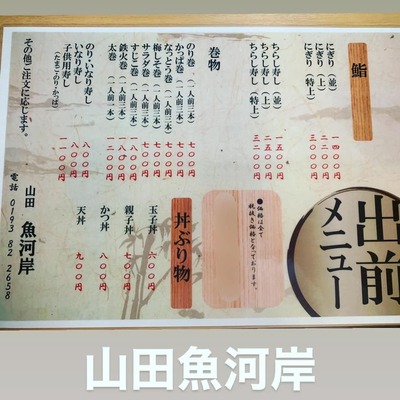 出前
メニュー
鮨
にぎり（並） 一四〇〇円
にぎり（上） 二二〇〇円
にぎり（特上） 三〇〇〇円
ちらし寿し（並） 一五〇〇円
ちらし寿し（上） 二五〇〇円
ちらし寿し（特上） 三二〇〇円
巻物
のり巻（一人前三本） 七〇〇円
かっぱ巻（一人前三本） 七〇〇円
なっとう巻（一人前三本） 七〇〇円
梅しそ巻（一人前三本） 七〇〇円
サラダ巻（一人前三本） 七〇〇円
すじこ巻（一人前三本）
鉄火巻（一人前三本） 一八〇〇円
太巻（一人前一本）
のり・いなり寿し 八〇〇円
いなり寿し 八〇〇円
子供用寿し 一一〇〇円
（たまごのり・かっぱ）
その他ご注文に応じます。
●価格は全て
税抜き価格となっております。
丼ぶり物
玉子丼 六〇〇円
親子丼 七〇〇円
かつ丼 八〇〇円
天丼 九〇〇円
山田 魚河岸
電話 0193 82 2658
山田魚河岸